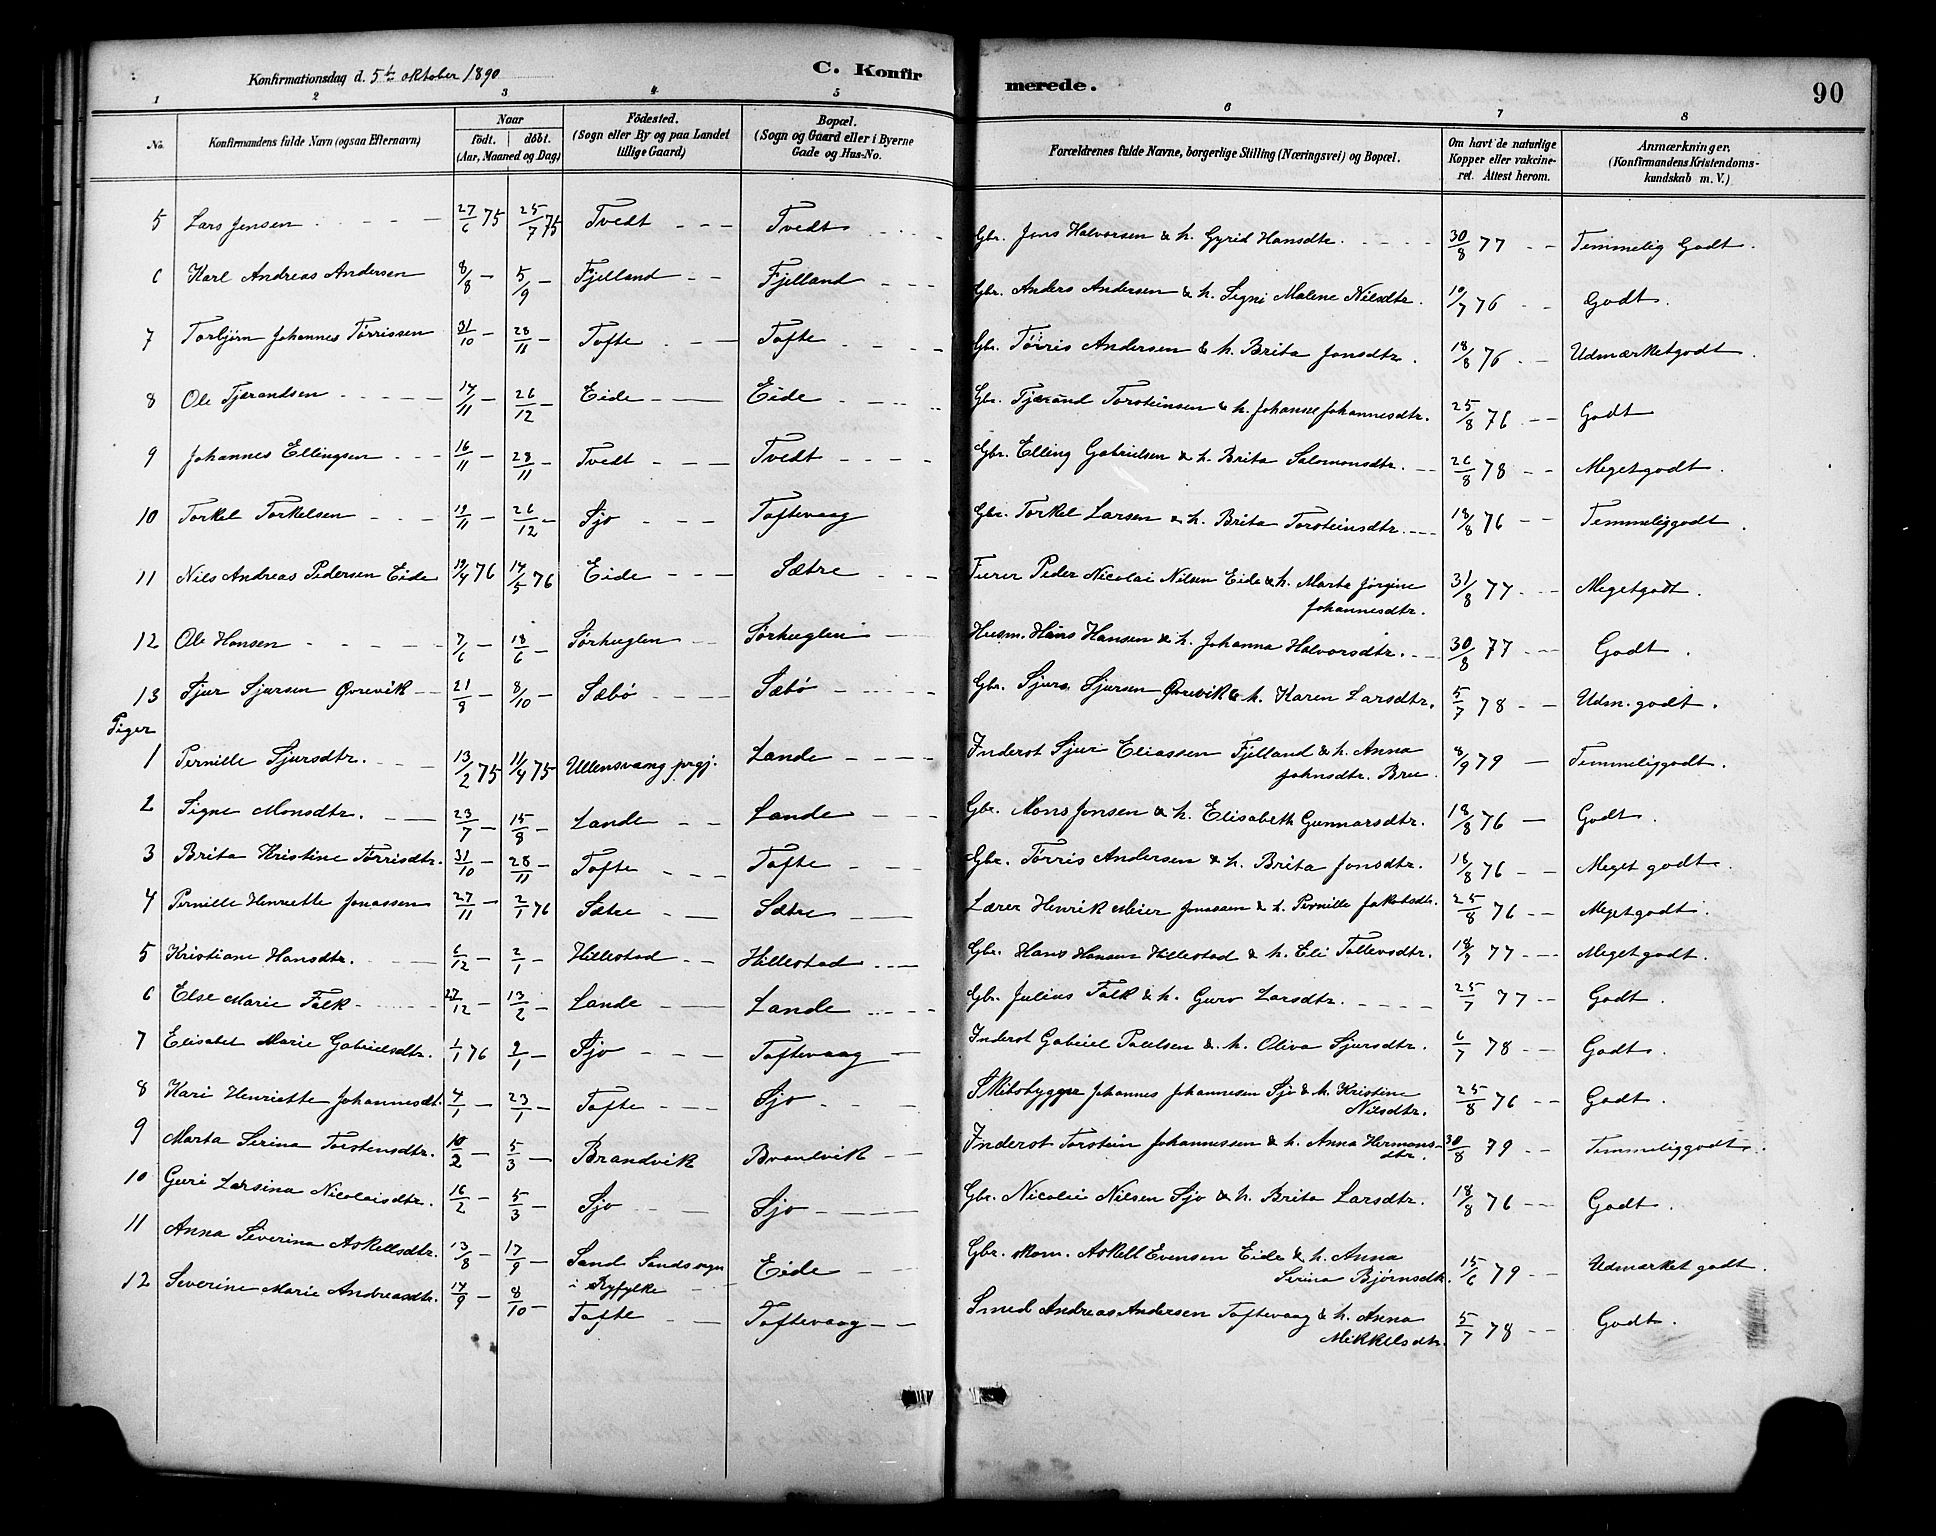 Konfirmationsdag d. 5te oktober 1890
C. Konfirmerede.
90
1 2 3 4 5 6 7 8
No. Konfirmandens fulde Navn (ogsaa Efternavn) Naar födt. döbt. (Aar, Maaned og Dag) Födested. (Sogn eller By og paa Landet tillige Gaard) Bopæl. (Sogn og Gaard eller i Byerne Gade og Hus-No. Forældrenes fulde Navne, borgerlige Stilling (Næringsvei) og Bopæl. Om havt de naturlige Kopper eller vakcineret. Attest herom. Anmærkninger. (Konfirmandens Kristendomskundskab m. V.)
5 Lars Jensen 27/6 75 25/7 75 Tvedt Tvedt Gbr. Jens Halvorsen & h. Gyrid Hansdtr. 30/8 77 Temmelig Godt.
6 Karl Andreas Andersen 8/8 — 5/9 — Fjelland Fjelland Gbr. Anders Andersen & h. Signi Malene Nilsdtr. 10/7 76 Godt.
7 Torbjørn Johannes Tørrissen 31/10 — 28/11 — Tofte Tofte Gbr. Tørris Andersen & h. Brita Jonsdtr. 18/8 76 Udmærketgodt.
8 Ole Tjærandsen 17/11 — 26/12 — Eide Eide Gbr. Tjærand Torsteinsen & h. Johanne Johannesdtr. 25/8 76 Godt
9 Johannes Ellingsen 16/11 — 28/11 — Tvedt Tvedt Gbr. Elling Gabrielsen & h. Brita Salomonsdtr. 26/8 78 Megetgodt.
10 Torkel Torkelsen 19/11 — 26/12 — Sjo Toftevaag Gbr. Torkel Larsen & h. Brita Torsteinsdtr. 18/8 76 Temmeliggodt.
11 Nils Andreas Pedersen Eide 19/4 76 14/5 76 Eide Sætre Furer Peder Nicolai Nilsen Eide & h. Marta Jørgine Johannesdtr. 31/8 77 Megetgodt.
12 Ole Hansen 7/6 — 18/6 — Sørhuglen Sørhuglen Husm. Hans Hansen & h. Johanna Halvorsdtr. 30/8 77 Godt.
13 Sjur Sjursen Øvrevik 21/8 — 8/10 — Sæbø Sæbø Gbr. Sjurs Sjursen Øvrevik & h. Karen Larsdtr. 5/7 78 Udm. godt.
Piger
1 Pernille Sjursdtr. 13/2 75 11/4 75 Ullensvang prgj. Lande Inderst Sjur Eliassen Fjelland & h. Anna Johnsdtr. Bru. 8/9 79 Temmeliggodt.
2 Signe Monsdtr. 23/7 — 15/8 — Lande Lande Gbr. Mons Jonsen & h. Elisabeth Gunnarsdtr. 18/8 76 Godt.
3 Brita Kristine Tørrisdtr. 31/10 — 28/11 — Tofte Tofte Gbr. Tørris Andersen & h. Brita Jonsdtr. 18/8 76 Meget godt.
4 Pernille Henriette Jonassen 27/11 — 2/1 76 Sætre Sætre Lærer Henrik Meier Jonassen & h. Pernille Jakobsdtr. 25/8 76 Megetgodt.
5 Kristiane Hansdtr. 6/12 — 2/1 — Hillestad Hillestad Gbr. Hans Hansen Hillestad & h. Eli Tollevsdtr. 18/9 77 Megetgodt.
6 Else Marie Falk 27/12 — 13/2 — Lande Lande Gbr. Julius Falk & h. Guro Larsdtr. 25/7 77 Godt.
7 Elisabet Marie Gabrielsdtr. 1/1 76 9/1 — Sjo Toftevaag Inderst Gabriel Paulsen & h. Oliva Sjursdtr. 6/7 78 Godt.
8 Kari Henriette Johannesdt. 4/1 — 23/1 — Tofte Sjo Skibsbygger Johannes Johannesen Sjo & h. Kristine Nilsdtr. 25/8 76 Godt.
9 Marta Serina Torstensdtr. 10/2 — 5/3 — Brandvik Brandvik Inderst Torstein Johannessen & h. Anna Hermonsdtr. 30/8 79 Temmeliggodt.
10 Guri Larsina Nicolaisdtr. 16/2 — 5/3 — Sjo Sjo Gbr. Nicolai Nilsen Sjo & h. Brita Larsdtr. 18/8 76 Godt.
11 Anna Severina Askellsdtr. 13/8 — 17/9 — Sand Sands sogn i Ryfylke Eide Gbr. skom. Askell Evensen Eide & h. Anna Serina Bjørnsdtr. 15/6 79 Udmærket godt.
12 Severine Marie Andreasdtr. 14/9 — 8/10 — Tofte Toftevaag Smed Andreas Andersen Toftevaag & h. Anna Mikkelsdtr. 5/7 78 Godt.